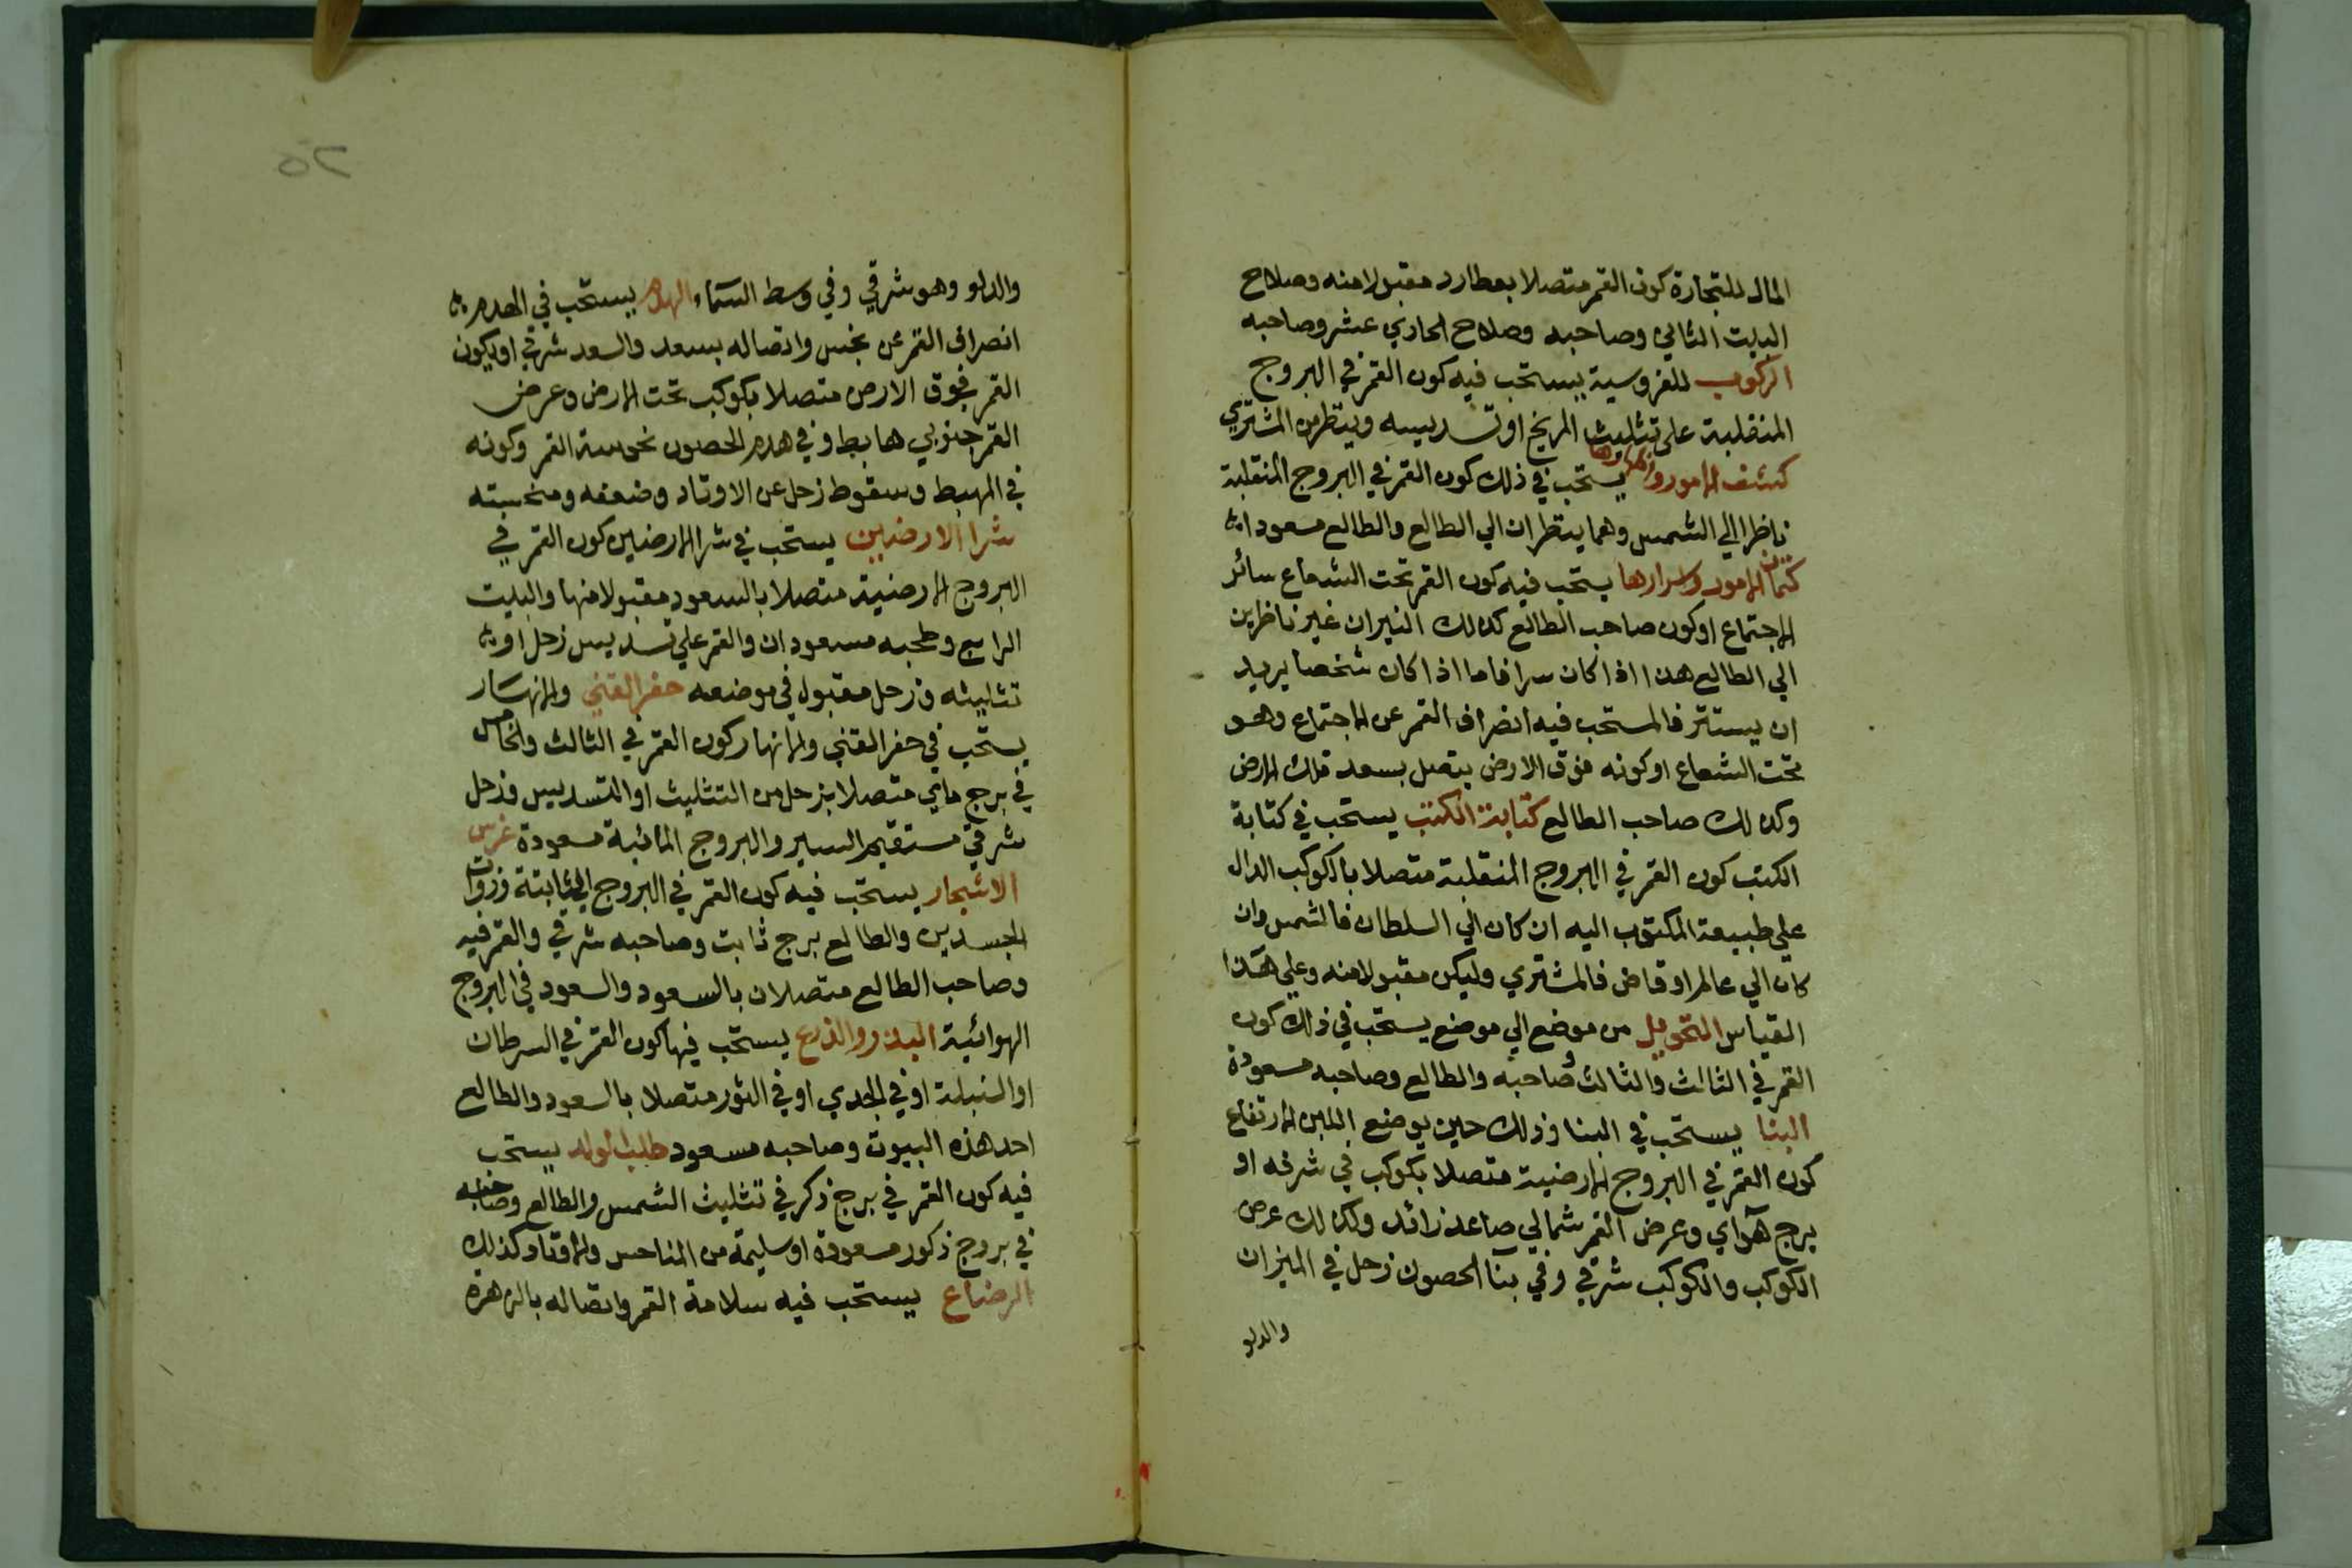 المال للتجارة كون القمر متصلا بعطارد مقبولا منه وصلاح
البيت الثاني وصاحبه وصلاح الحادي عشر وصاحبه
الركوب للفروسية يستحب فيه كون القمر في البروج
المنقلبة على تثليث المريخ او تسديسه وينظر من المشتري
كشف الامور واظهارها يستحب في ذلك كون القمر في البروج المنقلبة
ناظرا الي الشمس وهما ينظران الي الطالع والطالع مسعودا
كتمان الامور واسرارها يستحب فيه كون القمر تحت الشعاع سائر
الاجتماع او كون صاحب الطالع كذلك النيران غير ناظرين
الي الطالع هذا اذا كان سرا فاما اذا كان شخصا يريد
ان يستتر فالمستحب فيه انصراف القمر عن الاجتماع وهو
تحت الشعاع او كونه فوق الارض يتصل بسعد الارض
وكذلك صاحب الطالع كتابة الكتب يستحب في كتابة
الكتب كون القمر في البروج المنقلبة متصلا بالكوكب الدال
علي طبيعة المكتوب اليه ان كان الي السلطان فالشمس وان
كان الي عالم او قاض فالمشتري وليكن مقبولا منه وعلي هذا
القياس التحويل من موضع الي موضع يستحب في ذلك كون
القمر في الثالث والثالث وصاحبه والطالع وصاحبه مسعودة
البنا يستحب في البنا وذلك حين يوضع اللبن الارتفاع
كون القمر في البروج الارضية متصلا بكوكب في شرفه او
برج هوآي وعرض القمر شمالي صاعد زائد وكذلك عرض
الكوكب والكوكب شرقي وفي بنآ الحصون زحل في الميزان
والدلو
٥٢
والدلو وهو شرقي وفي وسط السمآء الهدم يستحب في الهدم
انصراف القمر عن نحس واتصاله بسعد والسعد شرقي او يكون
القمر فوق الارض متصلا بكوكب تحت الارض وعرض
القمر جنوبي هابط وفي هدم الحصون نحوسة القمر وكونه
في المهبط وسقوط زحل عن الاوتاد وضعفه ومنحسته
شرا الارضين يستحب في شرا الارضين كون القمر في
البروج الارضية متصلا بالسعود مقبولا منها والبيت
الرابع وصاحبه مسعودان والقمر علي تسديس زحل او
تثليثه وزحل مقبول في موضعه حفر القني والانهار
يستحب في حفر القني والانهار كون القمر في الثالث والخامس
في برج مايي متصلا بزحل من التثليث او التسديس وزحل
شرقي مستقيم السير والبروج المائية مسعودة غرس
الاشجار يستحب فيه كون القمر في البروج الثابتة وذوات
الجسدين والطالع برج ثابت وصاحبه شرقي والقمر فيه
وصاحب الطالع متصلان بالسعود والسعود في البروج
الهوائية البذر والذرع يستحب فيها كون القمر في السرطان
او السنبلة او في الجدي او في الثور متصلا بالسعود والطالع
احد هذه البيوت وصاحبه مسعود طلب الولد يستحب
فيه كون القمر في برج ذكر في تثليث الشمس والطالع وصاحبه
في بروج ذكور مسعودة او سليمة من المناحس والاوتاد كذلك
الرضاع يستحب فيه سلامة القمر واتصاله بالزهرة